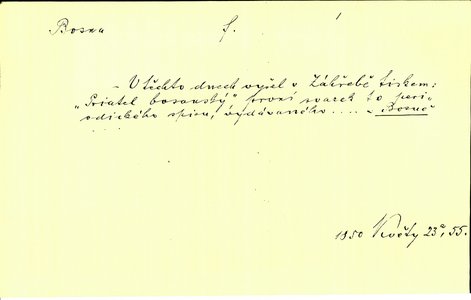 Bosna f.
- V těchto dnech vyšel v Záhřebě tiskem:
„Priatel bosanský" první svazek to peri-
odického spisu, vydávaného .... v Bosně
....
1850 Květy 23a, 55.